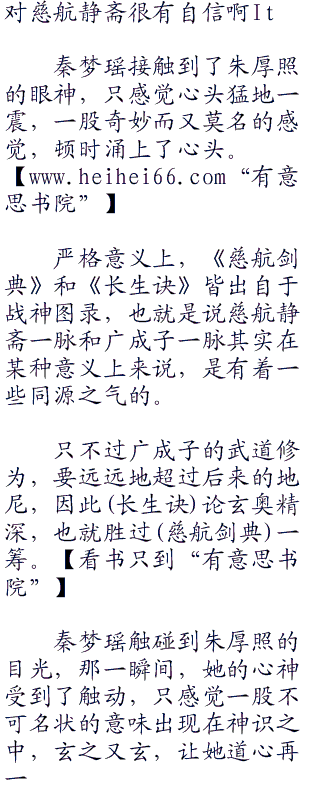 对慈航静斋很有自信啊It
秦梦瑶接触到了朱厚照
的眼神，只感觉心头猛地一
震，一股奇妙而又莫名的感
觉，顿时涌上了心头。
【www.heihei66.com“有意
思书院”】
严格意义上，《慈航剑
典》和《长生诀》皆出自于
战神图录，也就是说慈航静
斋一脉和广成子一脉其实在
某种意义上来说，是有着一
些同源之气的。
只不过广成子的武道修
为，要远远地超过后来的地
尼，因此(长生诀)论玄奥精
深，也就胜过(慈航剑典)一
筹。【看书只到“有意思书
院”】
秦梦瑶触碰到朱厚照的
目光，那一瞬间，她的心神
受到了触动，只感觉一股不
可名状的意味出现在神识之
中，玄之又玄，让她道心再
一